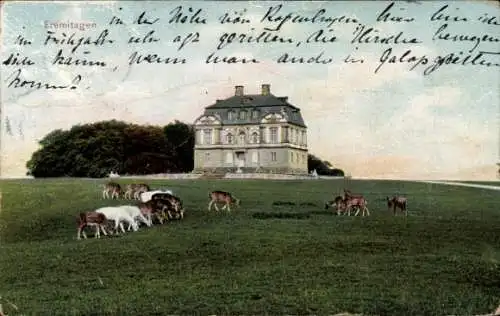 Eremitagen
in der Nähe von Kopenhagen, hier bin ich
im Frühjahr oft geritten, die Hirsche bewegen
sich kaum, wenn man an do in Galopp geritten
kommt.